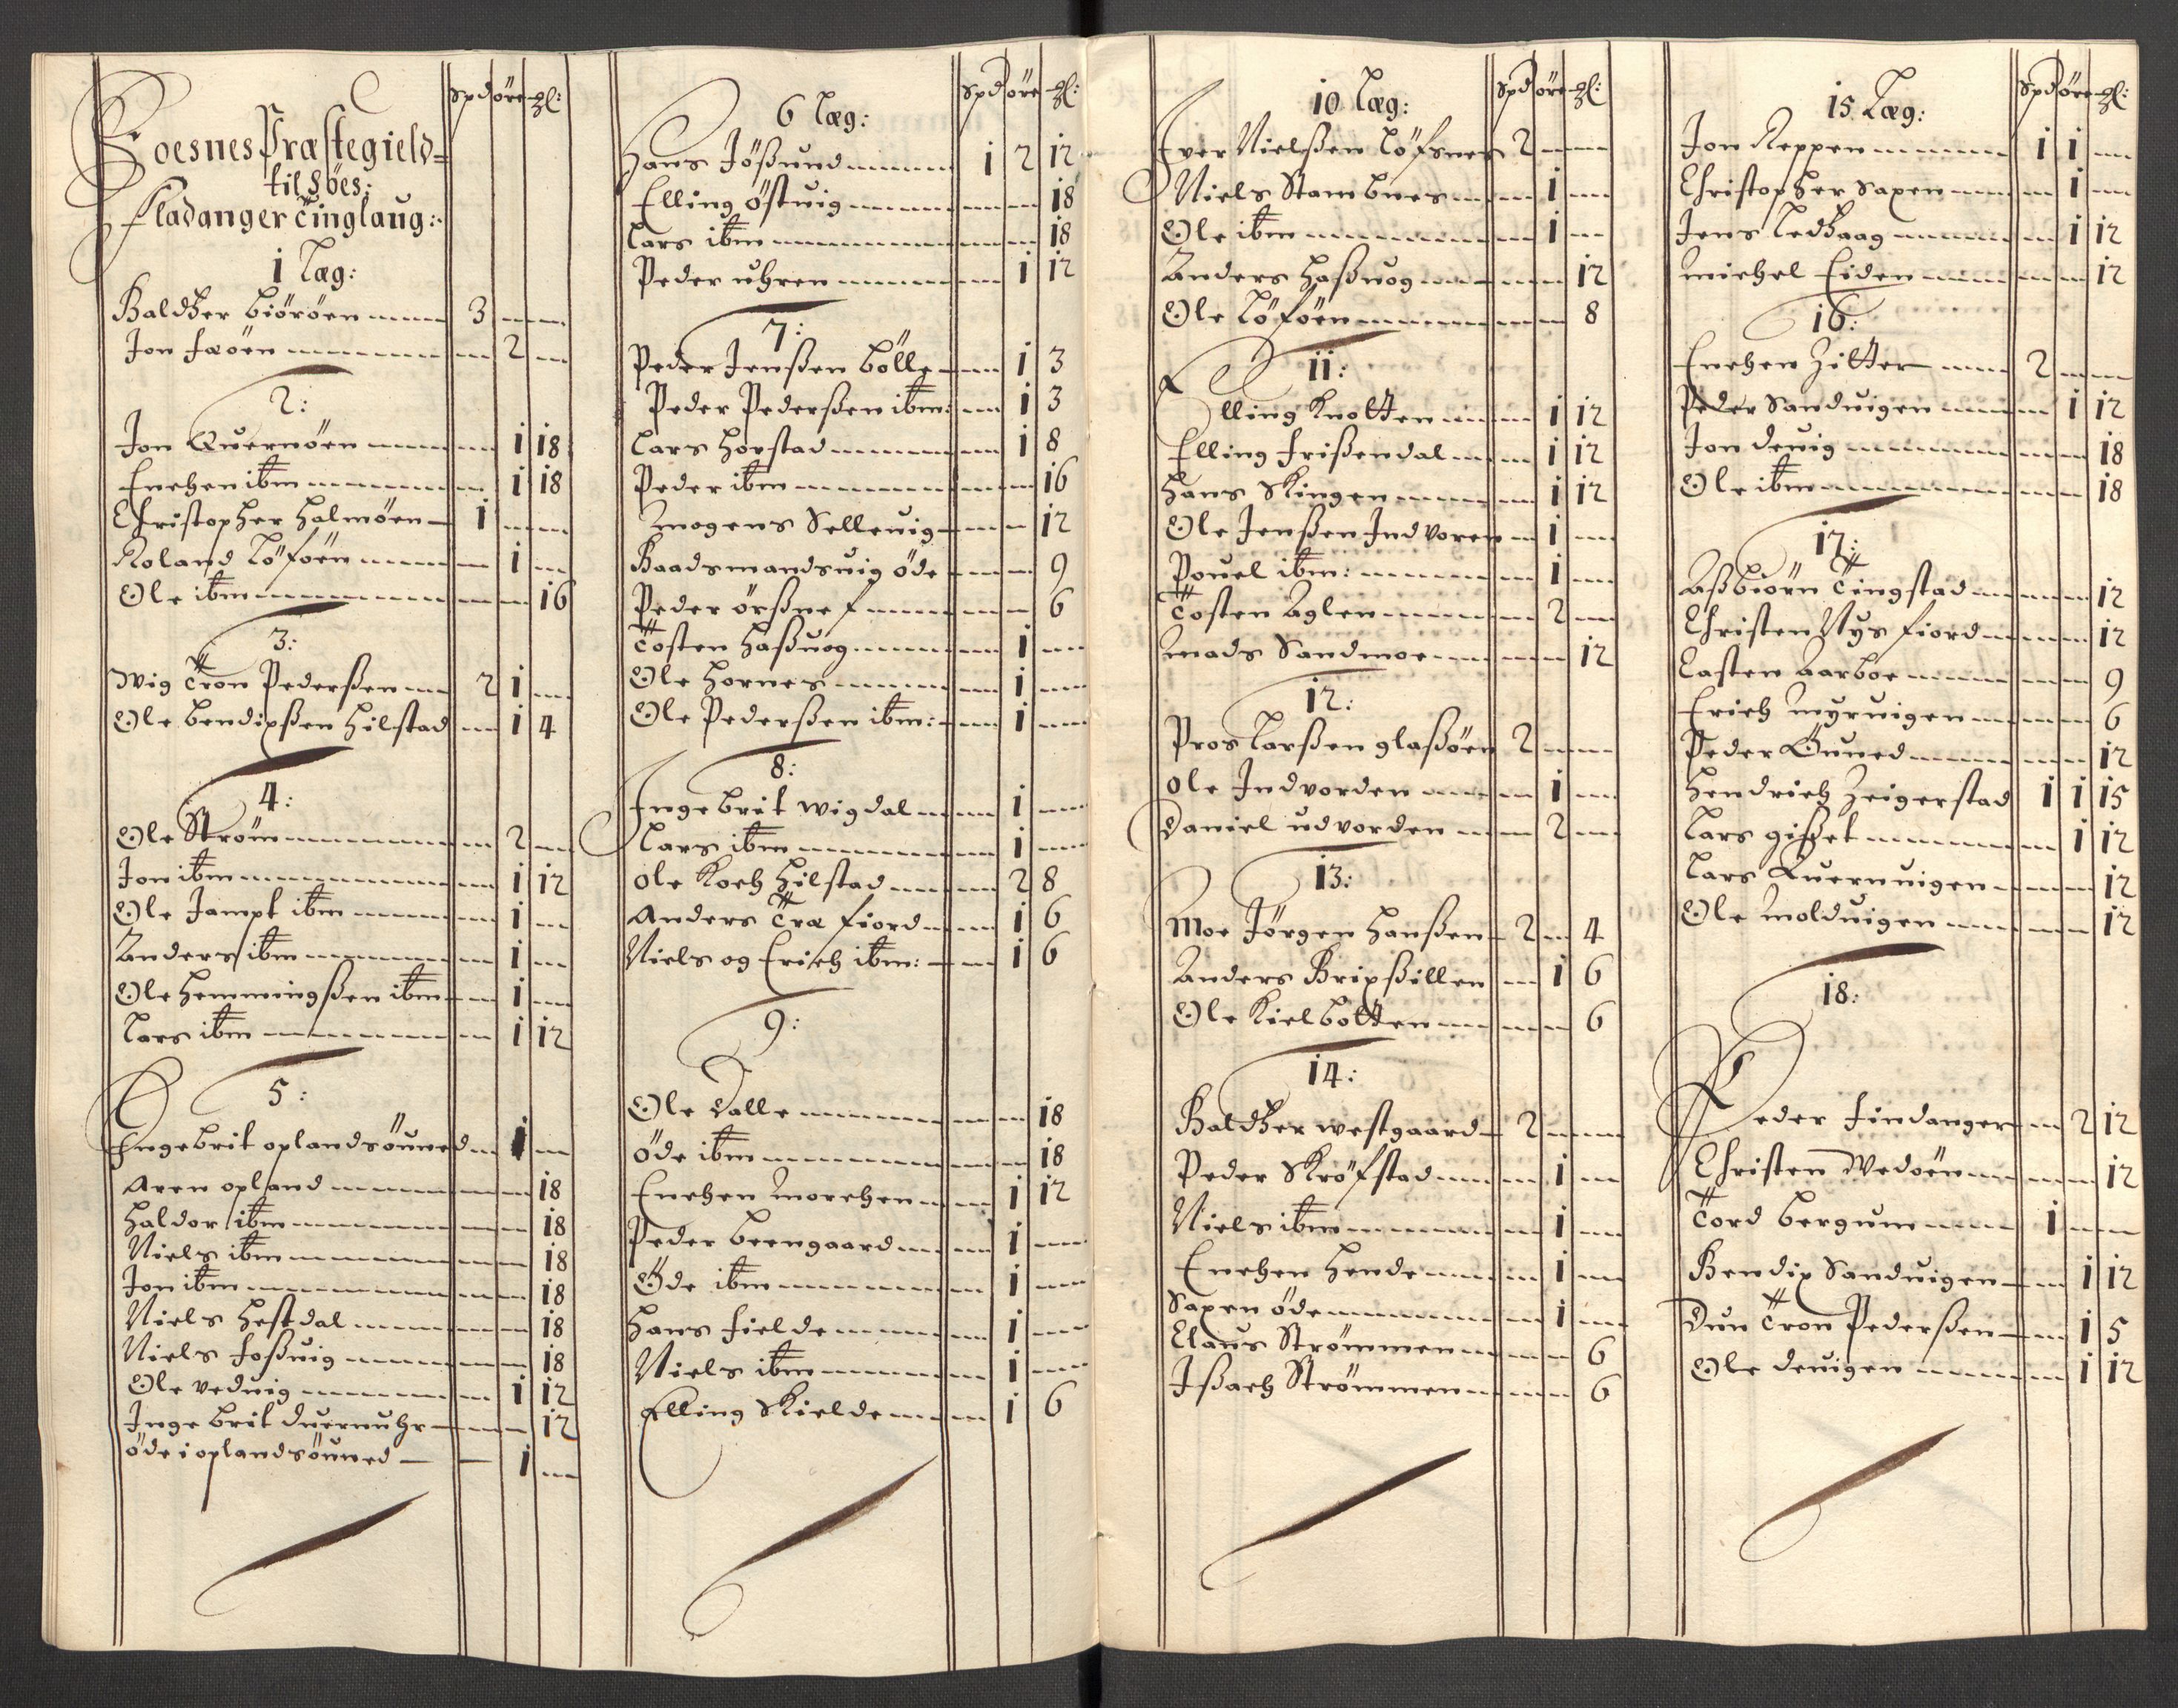 Spd øre ɱl:
Foesnes Præstegield=
til Søes:
Fladanger Tinglaug:
1 Læg:
Baldtzer Biöröen 3
Jon Faöen 2
2:
Jon Quernöen 1 18
Enchen ibm 1 18
Christopher Halmöen 1
Roland Löföen 1
Ole ibm 16
3:
Wig Tron Pederßen 2 1
Ole Bendixßen Hilstad 1 4
4:
Ole Ström 2
Jon ibm 1 12
Ole Jampt ibm 1
Anders ibm 1
Ole Hemmingßen ibm 1
Lars ibm 1 12
5:
Engebrit oplandsöuned 1
Aren opland 18
Haldor ibm 18
Niels ibm 18
Jon ibm 18
Niels Hestdal 18
Niels Foßuig 18
Ole veduig 1 12
Ingebrit Duernuhr 12
öde i oplandsöuned 1
Spd øre
6 Læg:
Hans Jößund 1 2 12
Elling Östuig 18
Lars ibm 18
Peder uhren 1 12
7:
Peder Jenßen Bölle 1 3
Peder Pederßen ibm: 1 3
Lars Horstad 1 8
Peder ibm 16
Mogens Selleuig 12
Baadsmandsuig öde 9
Peder örßnef 6
Tosten Haßuog 1
Ole Hornes 1
Ole Pederßen ibm: 1
8:
Ingebrit Wigdal 1
Lars ibm 1
Ole Koch Hilstad 2 8
Anders Træfiord 1 6
Niels og Erich ibm: 1 6
9:
Ole Dalle 18
öde ibm 18
Enchen Morchen 1 12
Peder Beengaard 1
Öde ibm 1
Hans Fielde 1
Niels ibm 1
Elling Skielde 1 6
Spd øre
10 Læg:
Iver Nielßen Löfsnes 2
Niels Stambnes 1
Ole ibm 1
Anders Haßuog 12
Ole Löföen 8
11:
Elling Knotten 1 12
Elling Frißendal 1 12
Hans Skingen 1 12
Ole Jenßen Indvoren 1
Pouel ibm: 1
Tosten Aglen 2
Mads Sandmoe 12
12:
Pros Larßen Glaßöen 2
Ole Indvorden 1
Daniel udvorden 2
13:
Moe Jörgen Hanßen 2 4
Anders Brixßillen 1 6
Ole Kielbotten 6
14:
Baldtzer Westgaard 2
Peder Skröfstad 1
Niels ibm 1
Enchen Hende 1
Saxen öde 1
Claus Strömmen 6
Ißach Strömmen 6
Spd øre
15 Læg:
Jon Reppen 1 1
Christopher Saxen 1
Jens Ledhaag 1 12
Michel Eiden 12
16:
Enchen Zitter 2
Peder Sanduigen 1 12
Jon Deuig 18
Ole ibm 18
17:
Aßbiörn Tingstad 12
Christen Nysfiord 12
Casten Aarboe 9
Erich Myruigen 6
Peder Öuned 12
Hendrich Zeigerstad 1 1 15
Lars Gißet 1 12
Lars Quernuigen 12
Ole Molduigen 12
18:
Peder Findanger 2 12
Christen Wedöen 12
Tord Bergum 1
Bendix Sanduigen 1 12
Dun Tron Pederßen 1 5
Ole Deuigen 1 12